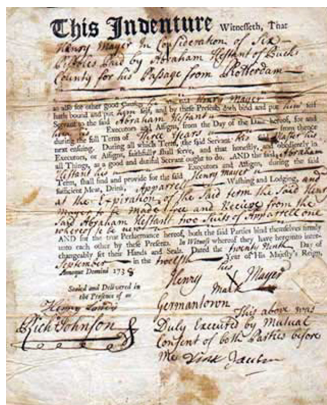 This Indenture Witnesseth, That
Henry Mayer in Consideration of Six
Pistoles paid by Abraham Hestant of Bucks
County for his Passage from Rotterdam
as also for other good Causes Henry Mayer
hath bound and put himself, and by these Presents doth bind and put himself
Servant to the said Abraham Hestant
his Executors and Assigns, from the Day of the Date hereof, for and
during the full Term of Three Years from thence
next ensuing. During all which Term, the said Servant his said
Executors, or Assigns, faithfully shall serve, and that honestly and obediently in
all Things, as a good and dutiful Servant ought to do. AND the said
Hestant his Executors and Assigns, during the said
Term, shall find and provide for the said Henry Mayer
sufficient Meat, Drink, Apparel Washing and Lodging, and
at the Expiration of the said term the said Henry
mayer made free and Receive from the
said Abraham Hestant two Suits of Apparrell one
whereof to be new
AND for the true Performance hereof, both the said Parties bind themselves firmly
unto each other by these Presents. In Witness whereof they have hereunto interchangeably set their Hands and Seals. Dated the twenty Day of
September in the twelfth Year of His Majesty's Reign,
Annoque Domini 1738
his
Sealed and Delivered
in the Presence of us
Henry Mayer
Mark
Germantown
Johnson
This above was
Duly Executed by Mutual
Consent of both Parties before
me